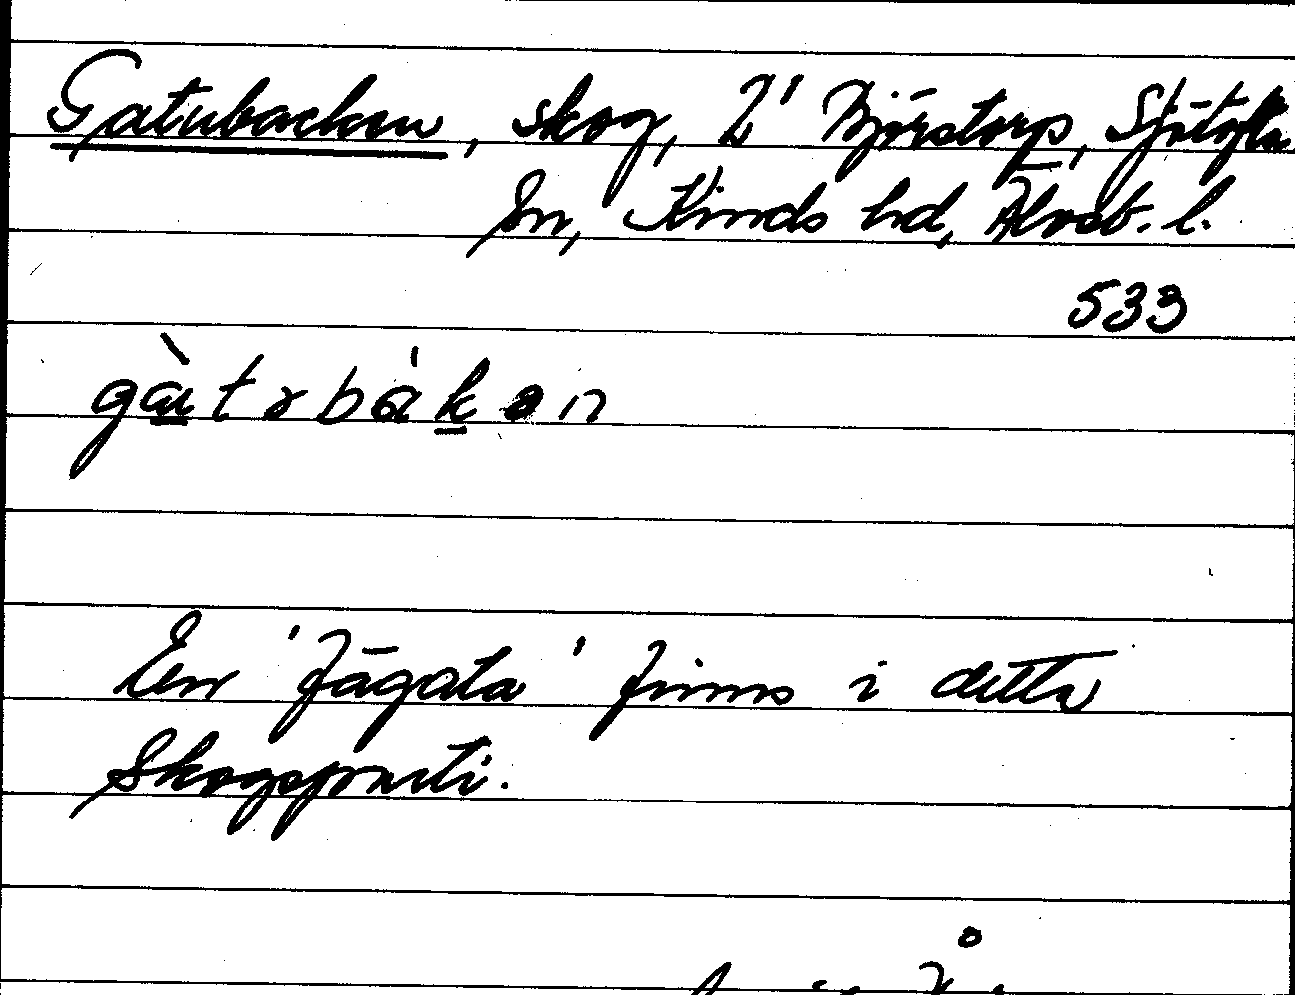 Gatubacken, skog, 2' Björstorp, Sjötofta
sn, Kinds hd, Älvsb. l.
533
gàtɤbákən
En 'fägata' finns i detta
skogsparti.